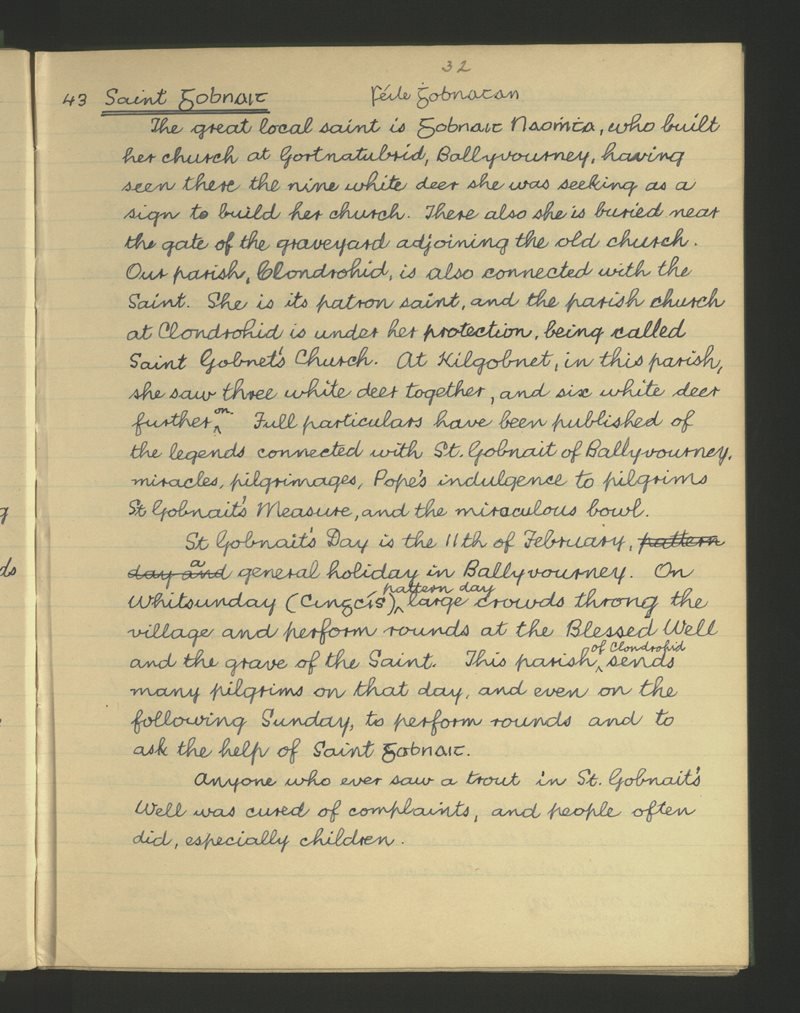 32
43 Saint Gobnait Féile Ġobnatan
The great local saint is Gobnait Naoṁṫa, who built
her church at Gortnatubrid, Ballyvourney, having
seen there the nine white deer she was seeking as a
sign to build her church. There also she is buried near
the gate of the graveyard adjoining the old church.
Our parish, Clondrohid, is also connected with the
Saint. She is its patron saint, and the parish church
at Clondrohid is under her protection, being called
Saint Gobnet's Church. At Kilgobnet, in this parish,
she saw three white deer together, and six white deer
further on. Full particulars have been published of
the legends connected with St. Gobnait of Ballyvourney,
miracles, pilgrimages, Pope's indulgence to pilgrims
St Gobnait's Measure, and the miraculous bowl.
St Gobnait's Day is the 11th of February, pattern
day and a general holiday in Ballyvourney. On
Whitsunday (Cingcís) pattern day large crowds throng the
village and perform rounds at the Blessed Well
and the grave of the Saint. This parish of Clondrohid sends
many pilgrims on that day, and even on the
following Sunday, to perform rounds and to
ask the help of Saint Gobnait.
Anyone who ever saw a trout in St. Gobnait's
Well was cured of complaints, and people often
did, especially children.